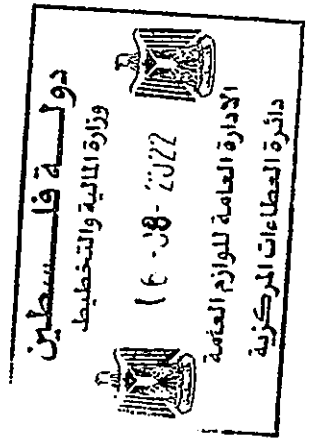 دولة فلسطين
وزارة المالية والتخطيط
16 -08- 2022
الادارة العامة للوازم العامة
دائرة العطاءات المركزية